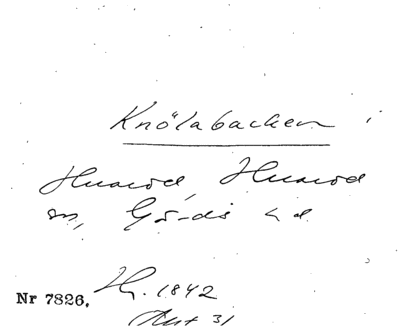 Knölabacken
Huaröd, Huaröd
sn, Gärds hd
Nr 7826. H. 1842
Akt 31